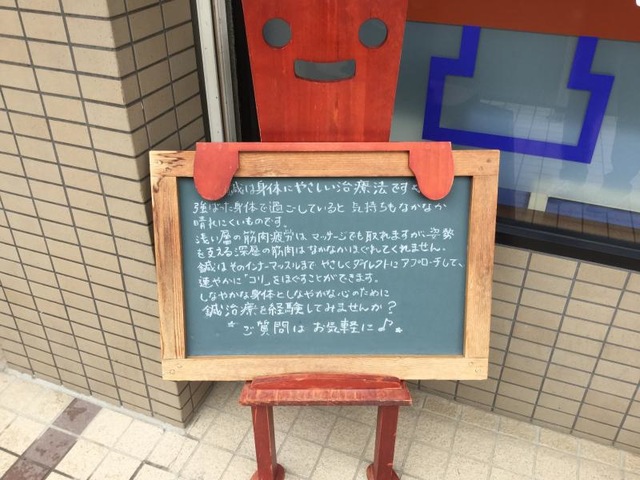 鍼は身体にやさしい治療法です
強ばった身体で過ごしていると気持ちもなかなか
晴れにくいものです。
浅い層の筋肉疲労は、マッサージでも取れますが、姿勢
を支える深層の筋肉はなかなかほぐれてくれません。
鍼はそのインナーマッスルまで やさしくダイレクトにアプローチして、
速やかに"コリ"をほぐすことができます。
しなやかな身体としなやかな心のために
鍼治療を経験してみませんか?
*ご質問は お気軽に♪*